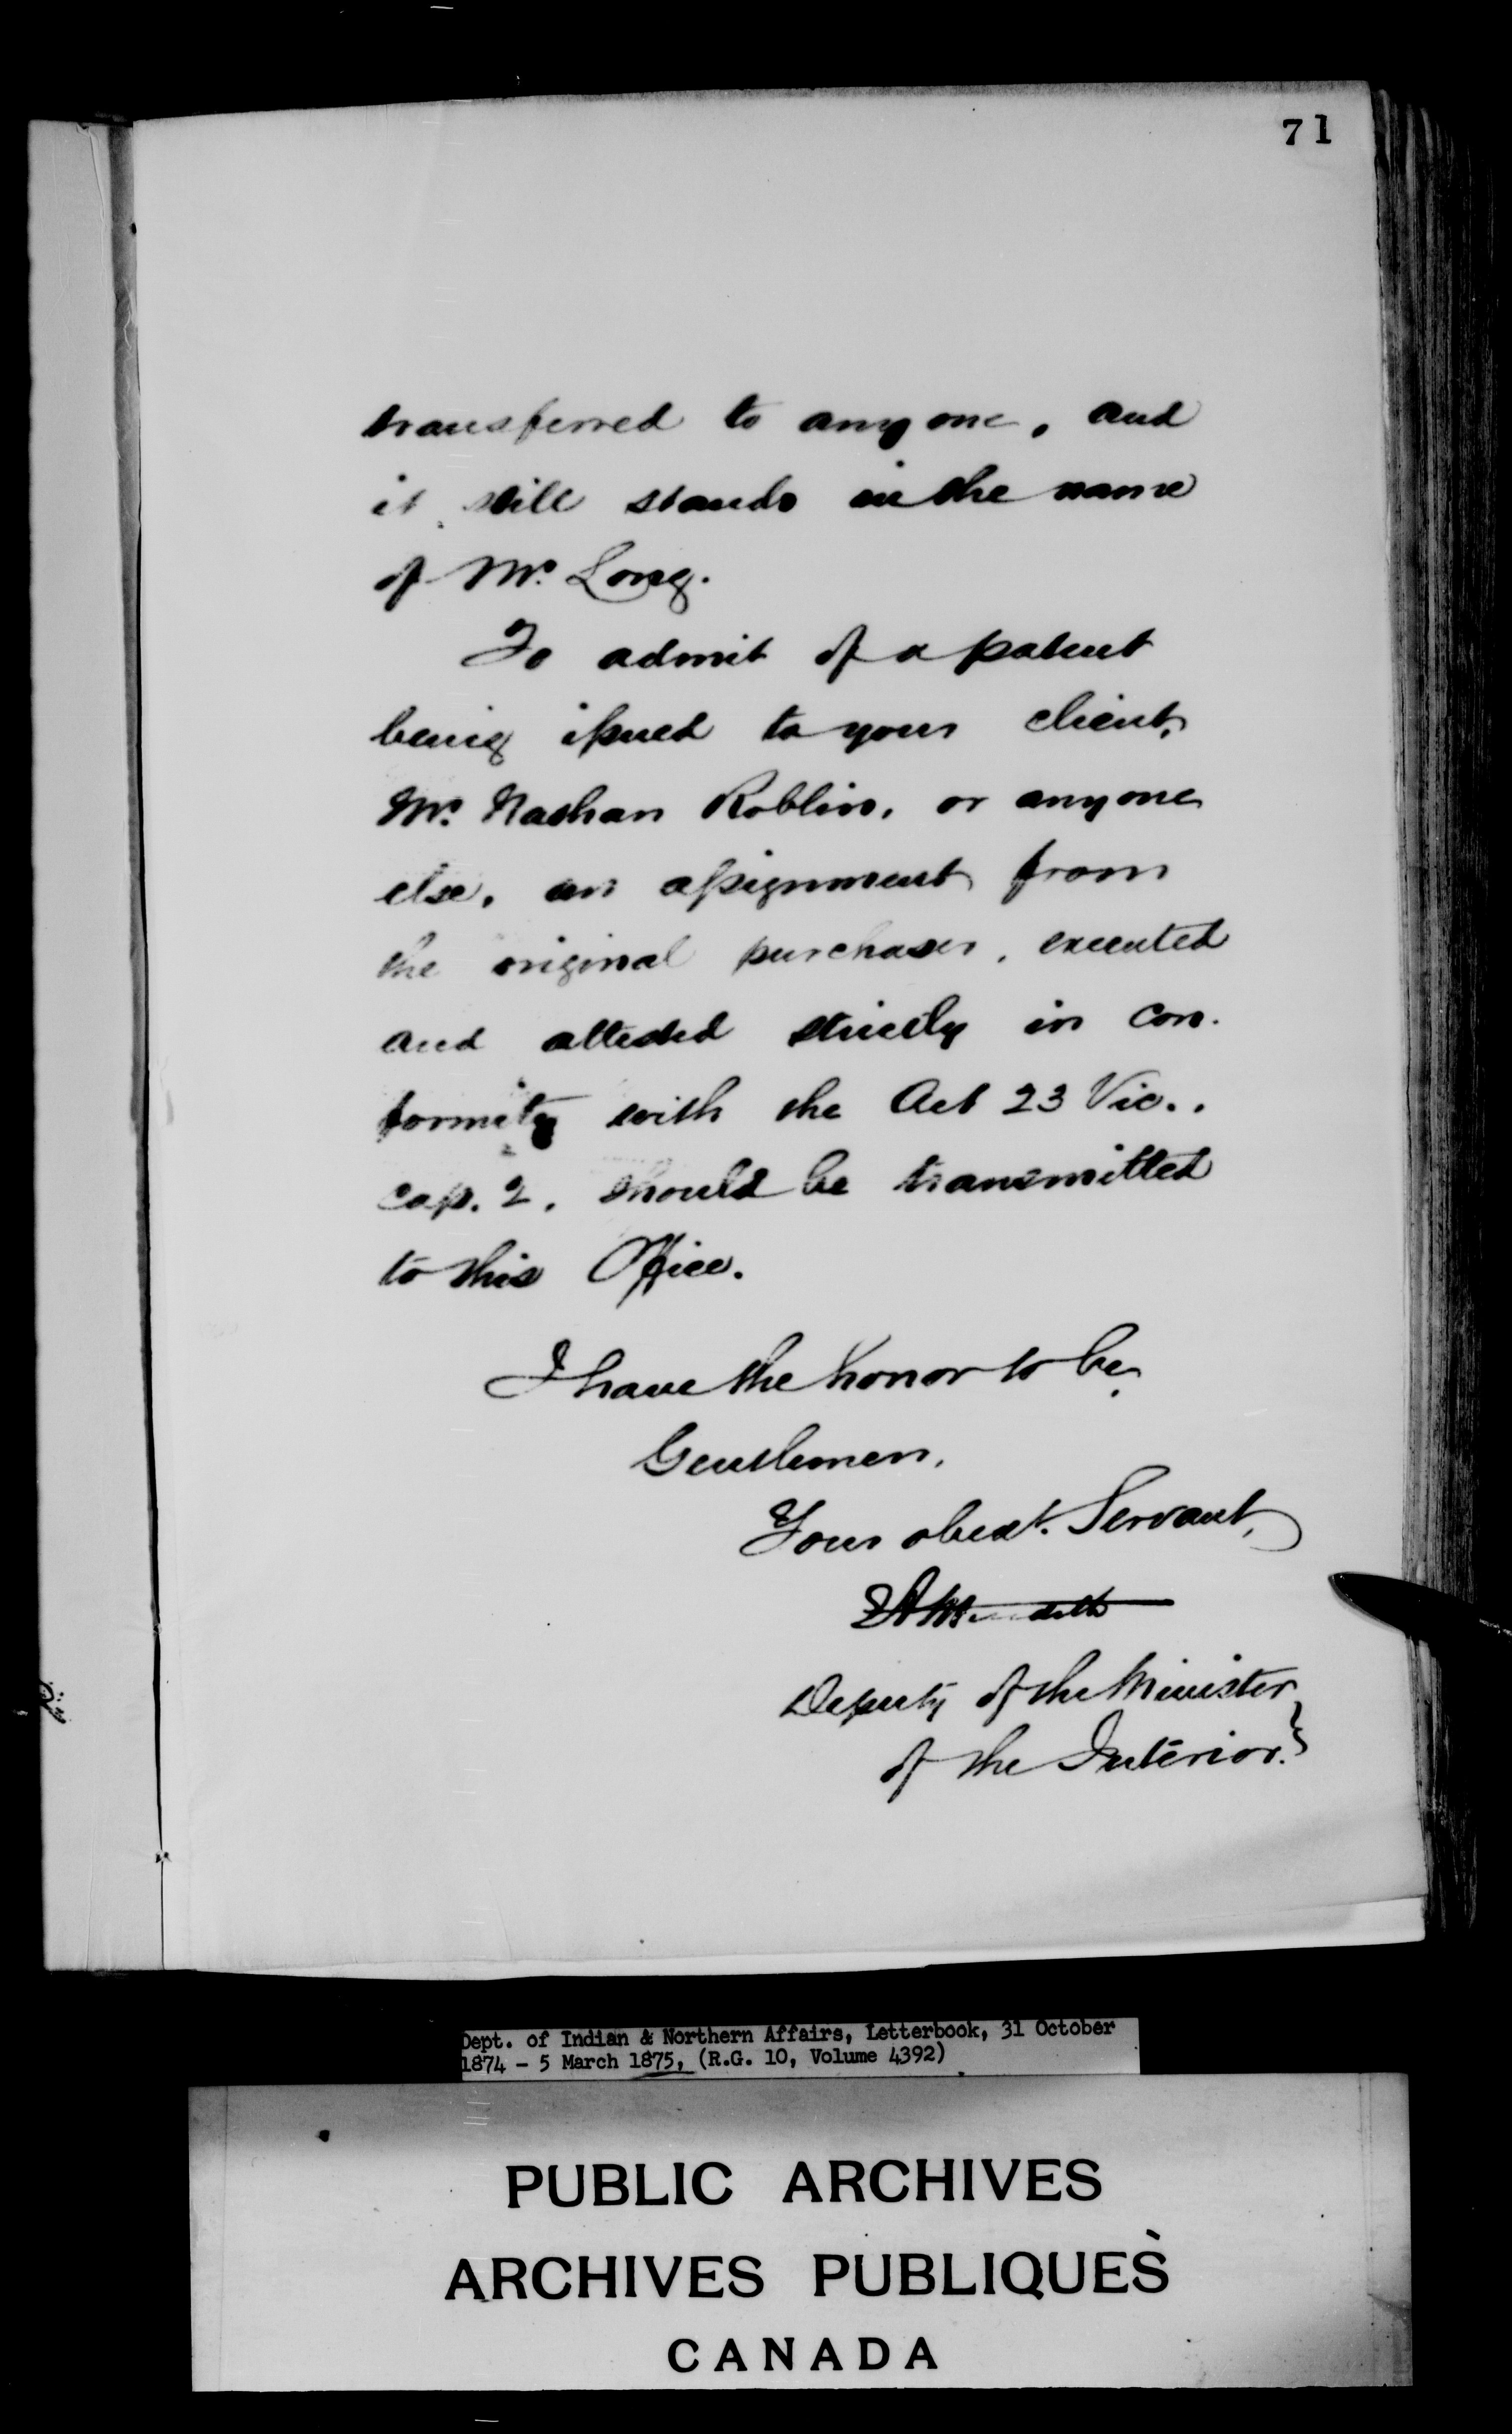 71
transferred to any one, and
it still stands in the name
of Mr. Long.
To admit of a patent
being issued to your client,
Mr. Nathan Roblin, or anyone
else, an assignment from
the original purchaser, executed
and attested strictly in con-
formity with the Act 23 Vic.,
cap. 2, should be transmitted
to this Office.
I have the honor to be,
Gentlemen,
Your obedt. Servant,
Deputy of the Minister
of the Interior.}
Dept. of Indian & Northern Affairs, Letterbook, 31 October
1874 - 5 March 1875, (R.G. 10, Volume 4392)
PUBLIC ARCHIVES
ARCHIVES PUBLIQUES
CANADA